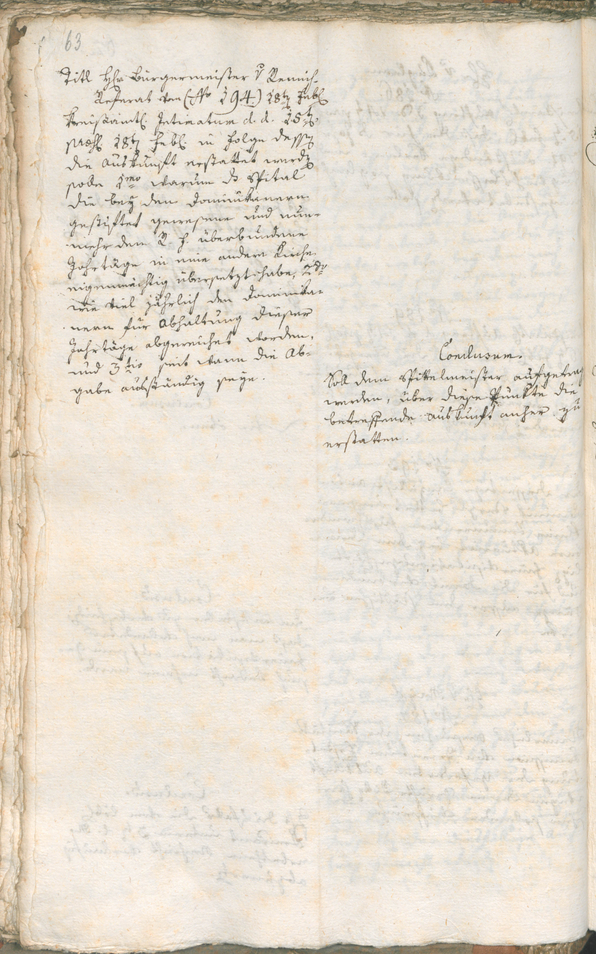 63
Titl. Hr. Bürgermeister v Remich
Referat von (No 194) 28t Febl
Kreisämtl. Intimatum d. d. 15t
praes. 28t Febl. in Folge dessen
die Auskunft erstattet werden
solle 1mo warum das Spital
die bey den Dominikanern
gestiftet gewesene und nun-
mehr dem R. f. überbundene
Jahrtäge in eine andere Kirche
eigenmächtig übersetzt habe, 2do
wie viel jährlich den Dominika-
nern für Abhaltung dieser
Jahrtäge abgereicht worden,
und 3tio seit wann die Ab-
gabe ausständig seye.
Conclusum.
Soll dem Spitelmeister aufgetragen
werden, über diese Punkte die
betreffende Auskunft anher zu
erstatten.